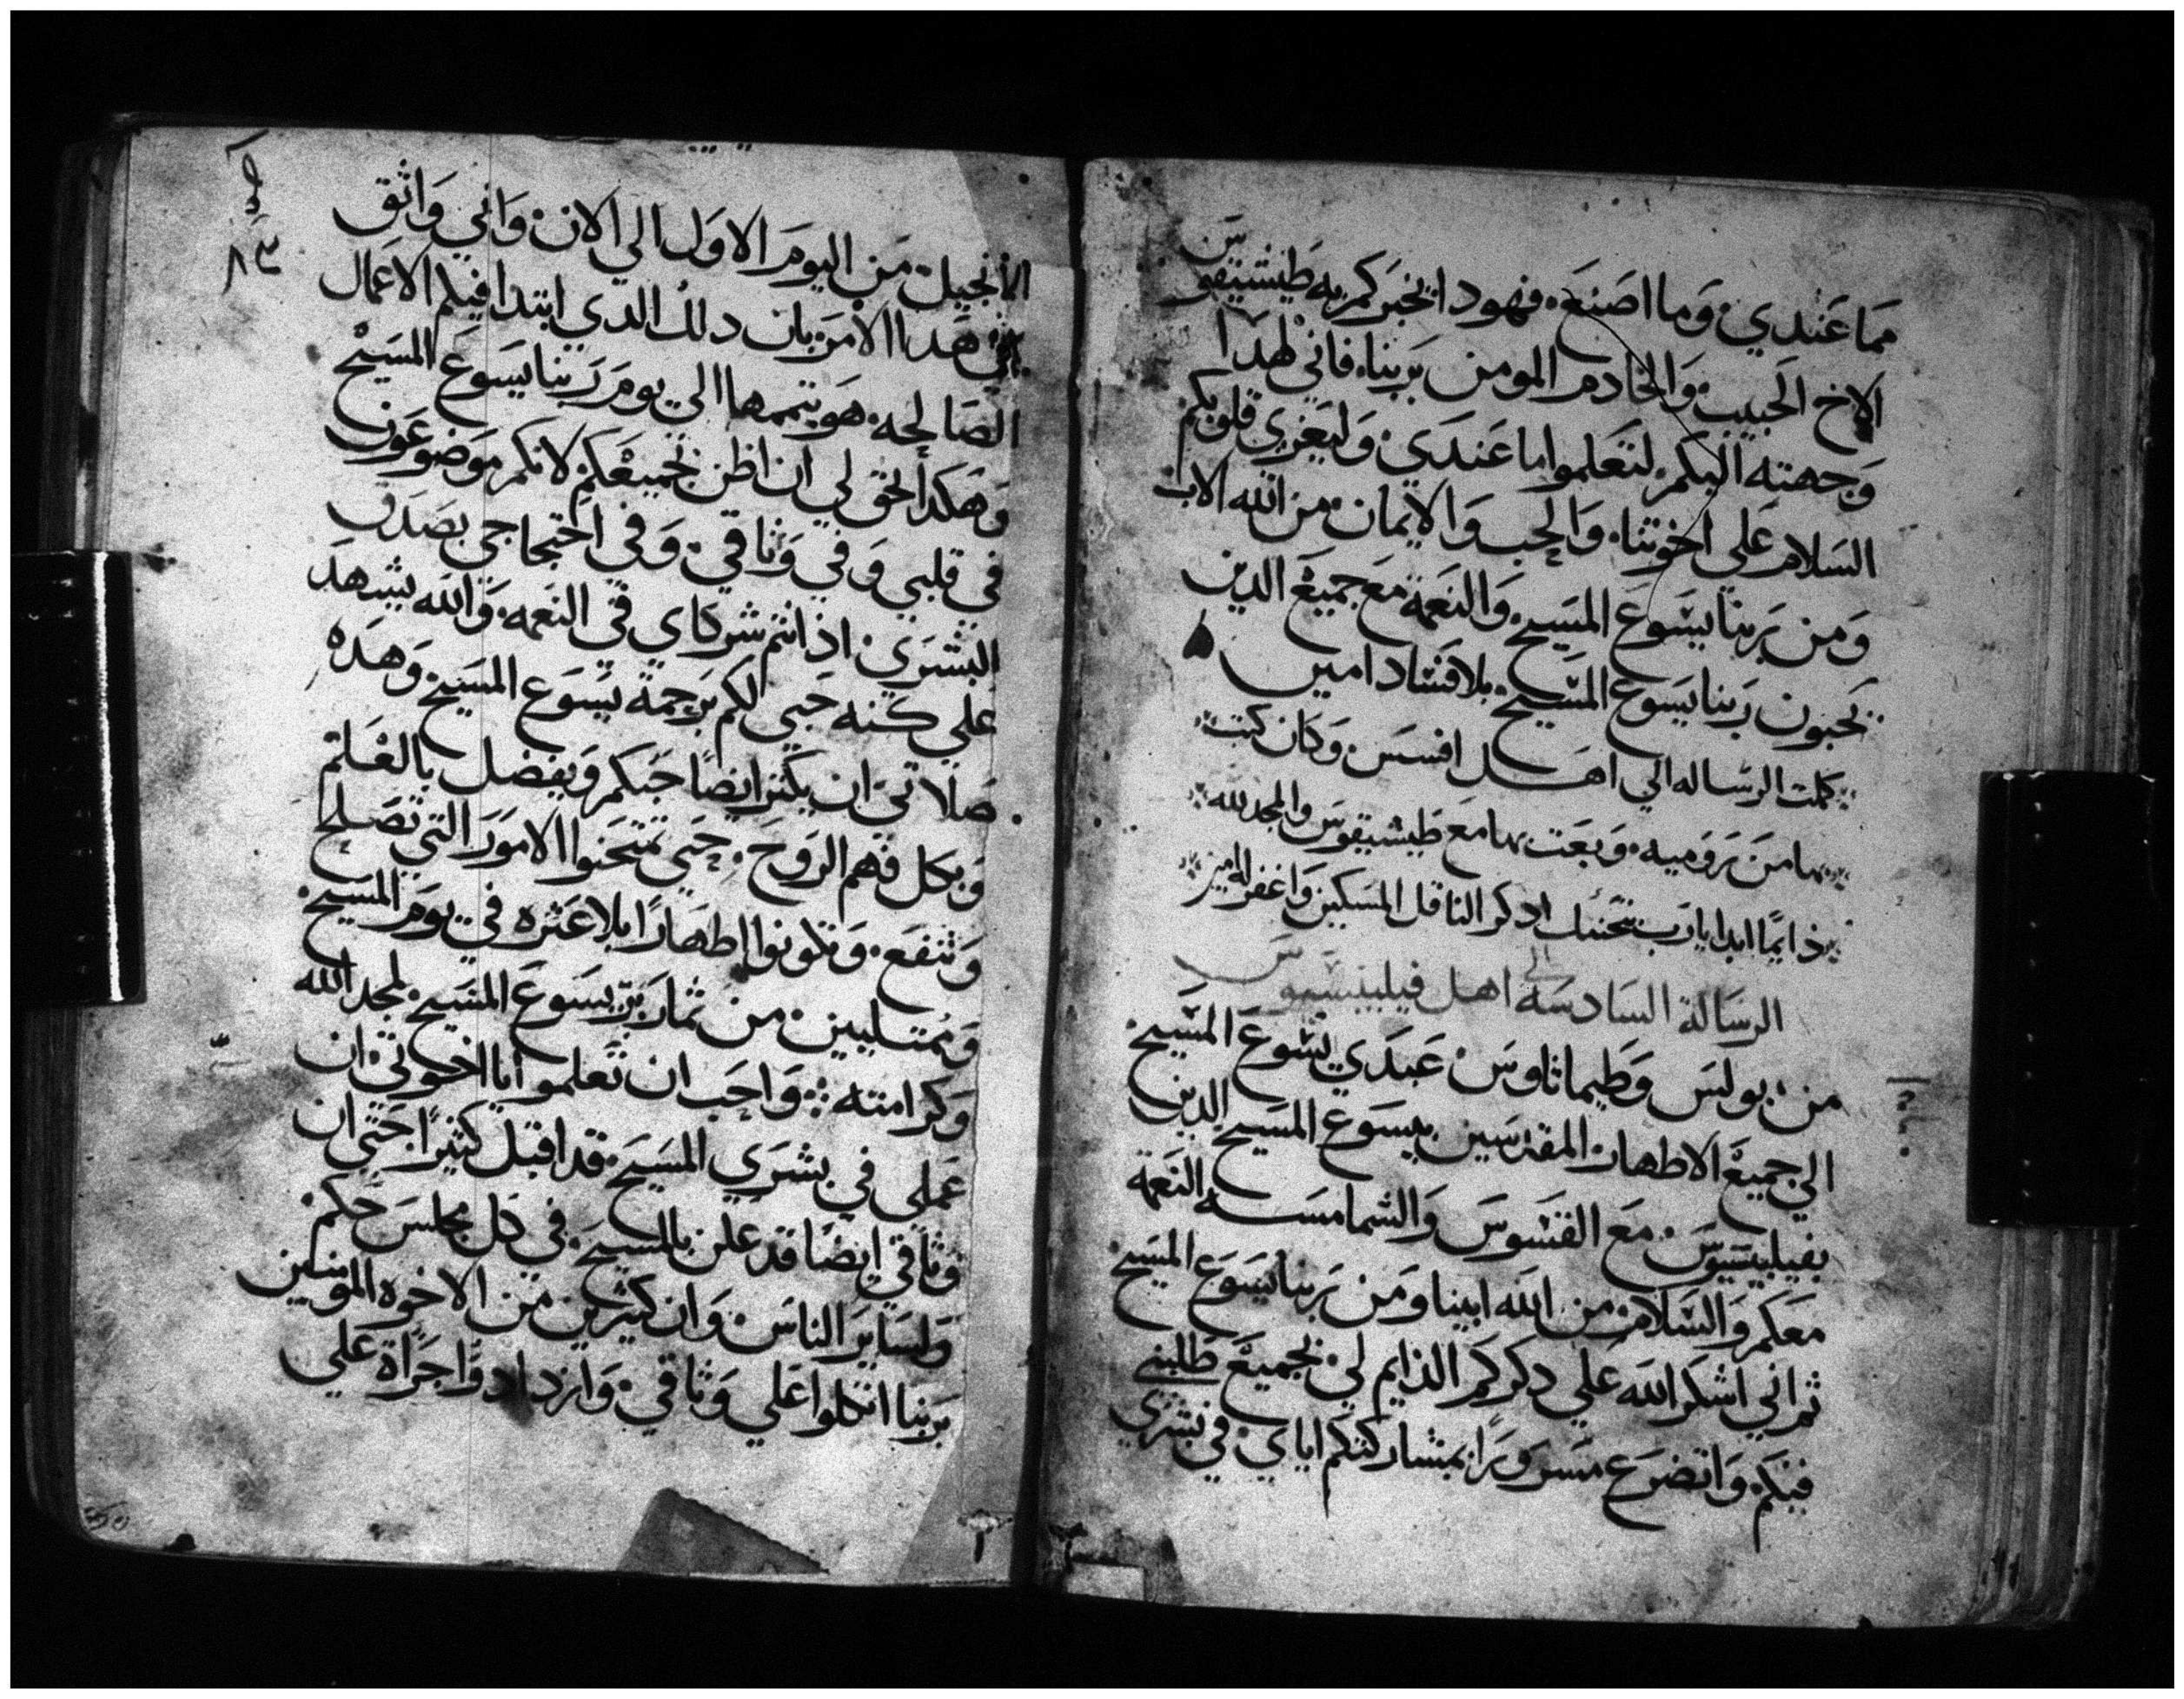 مما عندي وما اصنع فهودا يخبركم به طيشيقوس
الاخ الحبيب والخادم المومن بربنا فاني لهدا
وجهته اليكم لتعلموا ما عندي وليعزي قلوبكم
السلام علي اخوتنا والحب والايمان من الله الاب
ومن ربنا يسوع المسيح والنعمة مع جميع الدين
يحبون ربنا يسوع المسيح بلا فساد امين
كملت الرساله الي اهل افسس وكان كتب
بها من روميه وبعت بها مع طيشيقوس والمجد لله
دايمًا ابدا يارب بتحننك ادكر الناقل المسكين واغفر له امين
الرسالة السادسه الي اهل فيلبسيوس
من بولس وطيماثاوس عبدي يسوع المسيح
الي جميع الاطهار المقدسين بيسوع المسيح الدين
بفيلبسيوس مع القسوس والشمامسه النعمة
معكم والسلام من الله ابينا ومن ربنا يسوع المسيح
ثم اني اشكر الله علي دكركم الدايم لي بجميع طلبتي
فيكم واتضرع مسرورًا بمشاركتكم اياي في بشري
٨٣
الانجيل من اليوم الاول الي الان واني واثق
في هدا الامر بان دلك الدي ابتدا فيكم الاعمال
الصالحه هو يتممها الي يوم ربنا يسوع المسيح
وهكدا يحق لي ان اظن بجميعكم لانكم موضوعون
في قلبي وفي وثاقي وفي احتجاجي بصدق
البشري اذ انتم شركاي في النعمه والله يشهد
علي كنه حبي لكم برحمة يسوع المسيح وهده
صلاتي ان يكثر ايضًا حبكم ويفضل بالعلم
وبكل فهم الروح حتي تمتحنوا الامور التي تصلح
وتنفع وتكونوا اطهارًا بلا عثره في يوم المسيح
وممتليين من ثمار بر يسوع المسيح لمجد الله
وكرامته واحب ان تعلموا يا اخوتي ان
عملي في بشري المسيح قد اقبل كثيرًا حتي ان
وثاقي ايضًا قد علن بالمسيح في كل مجلس حكم
ولساير الناس وان كثيرين من الاخوه المومنين
بربنا اتكلوا علي وثاقي وازدادوا جراة علي